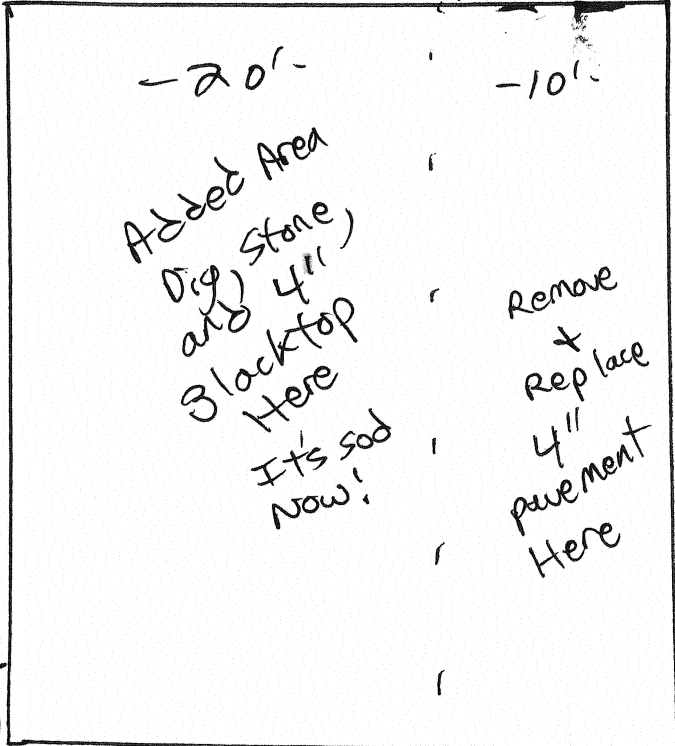 -20'-
Added Area
Dig, Stone,
and 4"
Blacktop
Here
It's sod
Now!
-10'-
Remove
+
Replace
4"
pavement
Here